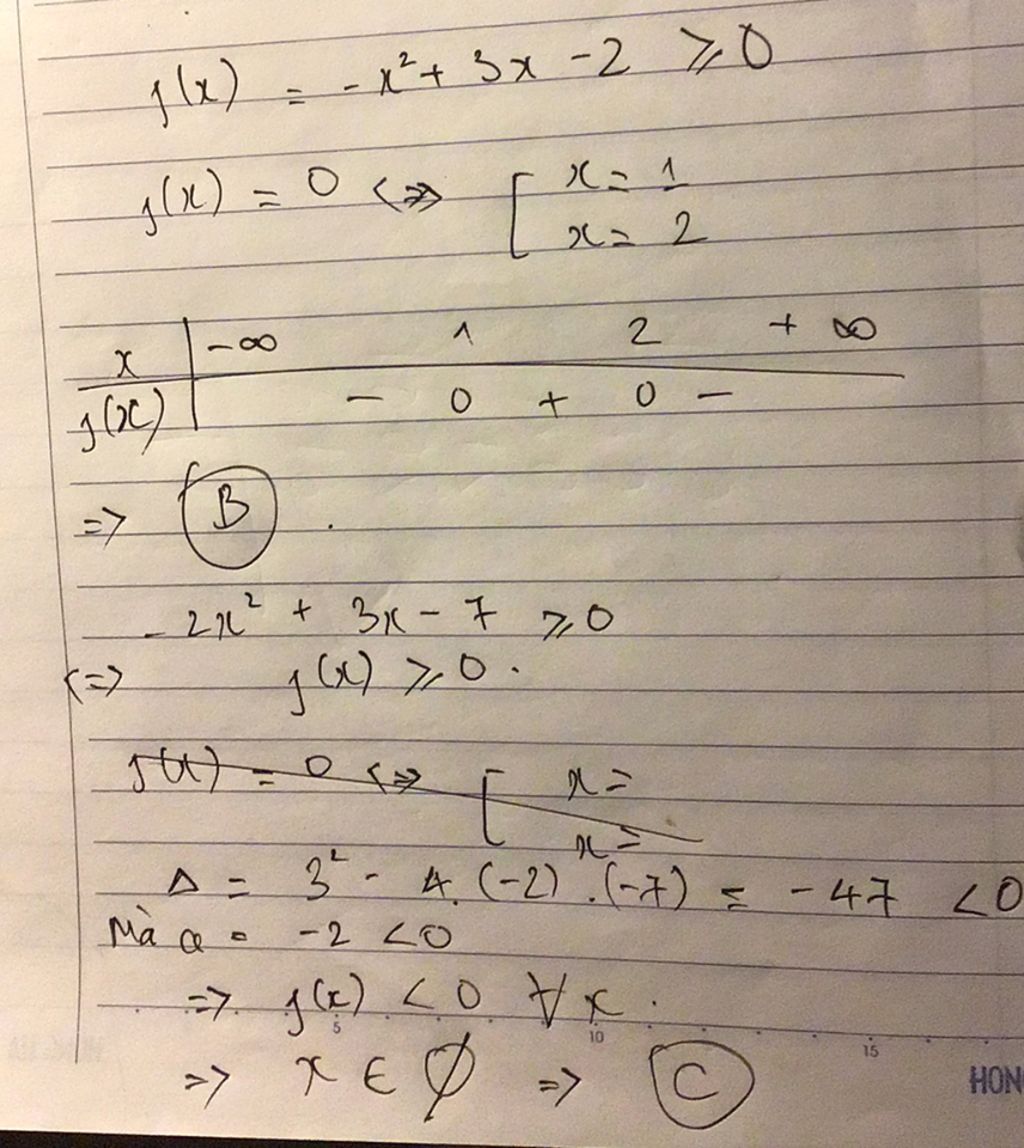 f(x) = -x² + 3x - 2 ⩾ 0
f(x) = 0 <=> [ x = 1
x = 2
x | -∞ 1 2 + ∞
f(x) | - 0 + 0 -
=> B .
- 2x² + 3x - 7 ⩾ 0
<=> f(x) ⩾ 0 .
f(x) = 0 <=> [ x =
x =
Δ = 3² - 4. (-2) .(-7) = -47 < 0
Mà a = -2 < 0
=> f(x) < 0 ∀x .
5 10 15
=> x ∈ ∅ => C
HON